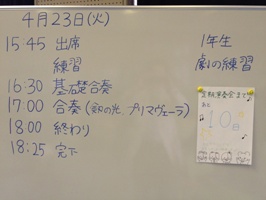 4月23日(火)
15:45 出席
練習
16:30 基礎合奏
17:00 合奏(叙の光、プリマヴェーラ)
18:00 終わり
18:25 完下
1年生
劇の練習
定期演奏会まで
あと
10日